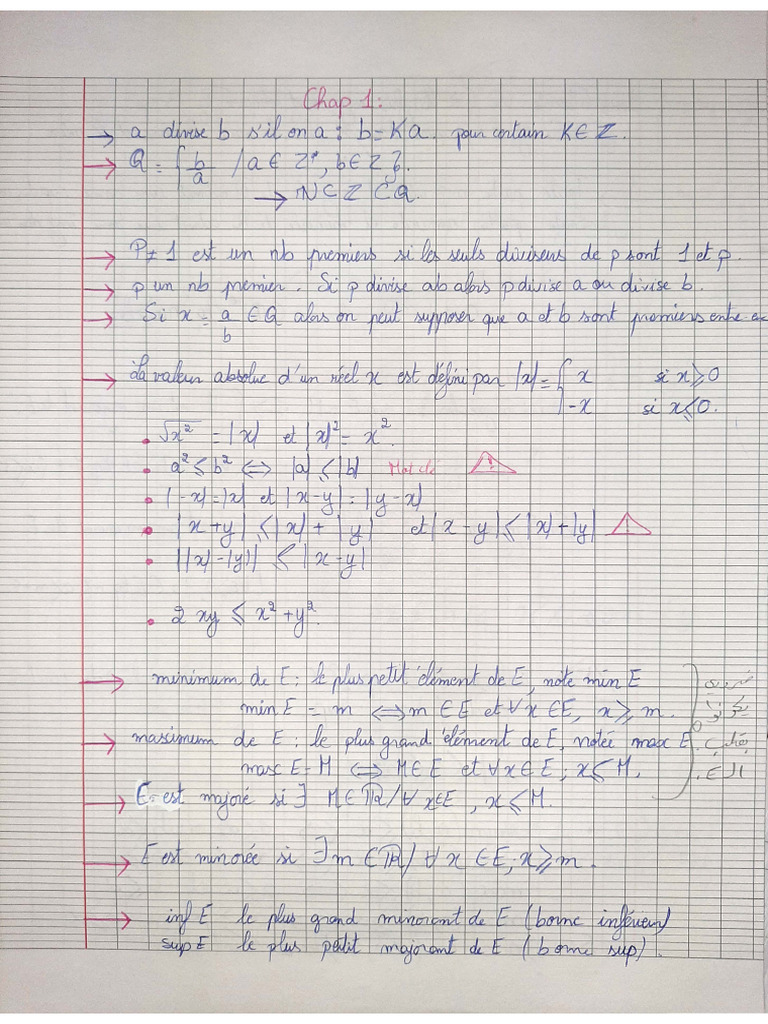 Chap 1:
→ a divise b s'il on a : b = Ka. pour certain K ∈ Z.
→ Q = { b/a / a ∈ Z*, b ∈ Z }.
→ N ⊂ Z ⊂ Q.
→ P ≠ 1 est un nb premiers si les seuls diviseurs de p sont 1 et p.
→ p un nb premier. Si p divise ab alors p divise a ou divise b.
→ Si x = a/b ∈ Q alors on peut supposer que a et b sont premiers entre
→ la valeur absolue d'un réel x est défini par |x| = { x si x ≥ 0
-x si x ≤ 0.
• √x² = |x| et |x|² = x².
• a² ≤ b² ⟺ |a| ≤ |b| Mot clé ⚠
• |-x| = |x| et |x-y| = |y-x|
• |x+y| ≤ |x| + |y| et |x-y| ≤ |x|+|y| ⚠
• ||x|-|y|| ≤ |x-y|
• 2xy ≤ x²+y².
→ minimum de E : le plus petit élément de E, note min E
min E = m ⟺ m ∈ E et ∀x ∈ E, x ≥ m.
→ maximum de E : le plus grand élément de E, notée max E
max E = M ⟺ M ∈ E et ∀x ∈ E ; x ≤ M.
→ E est majoré si ∃ M ∈ ℝ / ∀ x ∈ E, x ≤ M.
→ E est minorée si ∃ m ∈ ℝ / ∀ x ∈ E, x ≥ m.
→ inf E le plus grand minorant de E (borne inférieur)
sup E le plus petit majorant de E (borne sup).